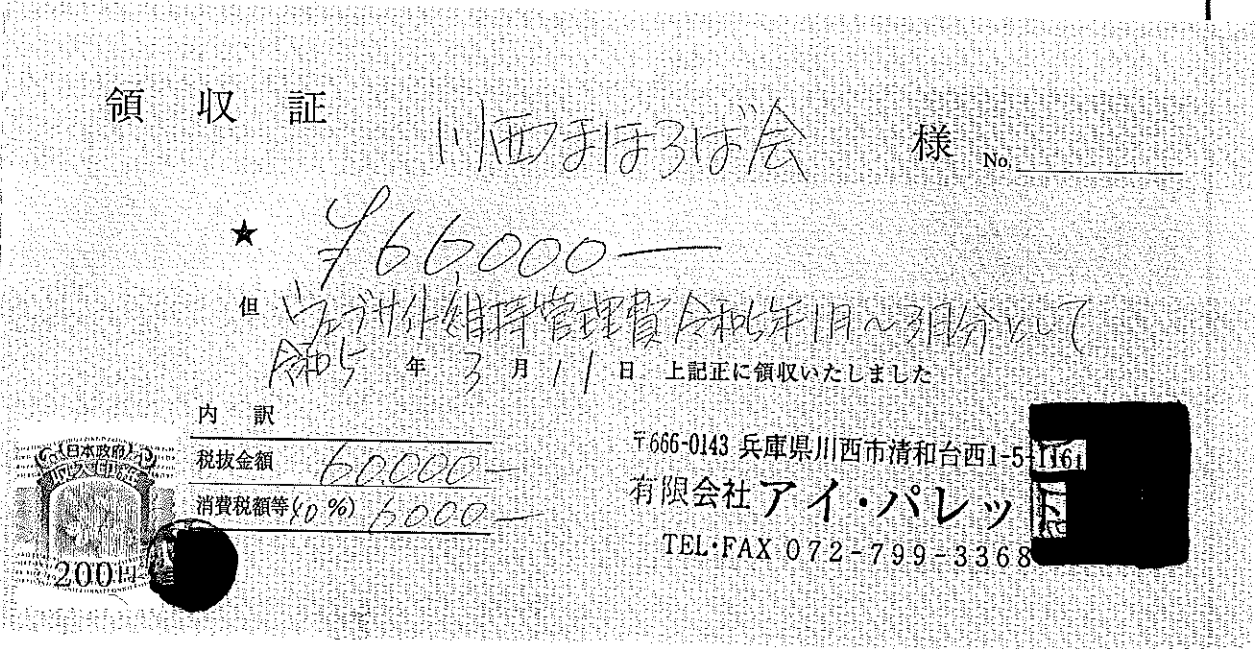 領収証
川西まほろば会 様 No.
★ ¥66,000—
但 ウェブサイト維持管理費 令和5年1月～3月分として
令和5年3月11日 上記正に領収いたしました
内訳
税抜金額 60,000—
消費税額等(10%) 6000—
日本政府
収入印紙
200円
〒666-0143 兵庫県川西市清和台西1-5-
有限会社アイ・パレット
TEL・FAX 072-799-3368